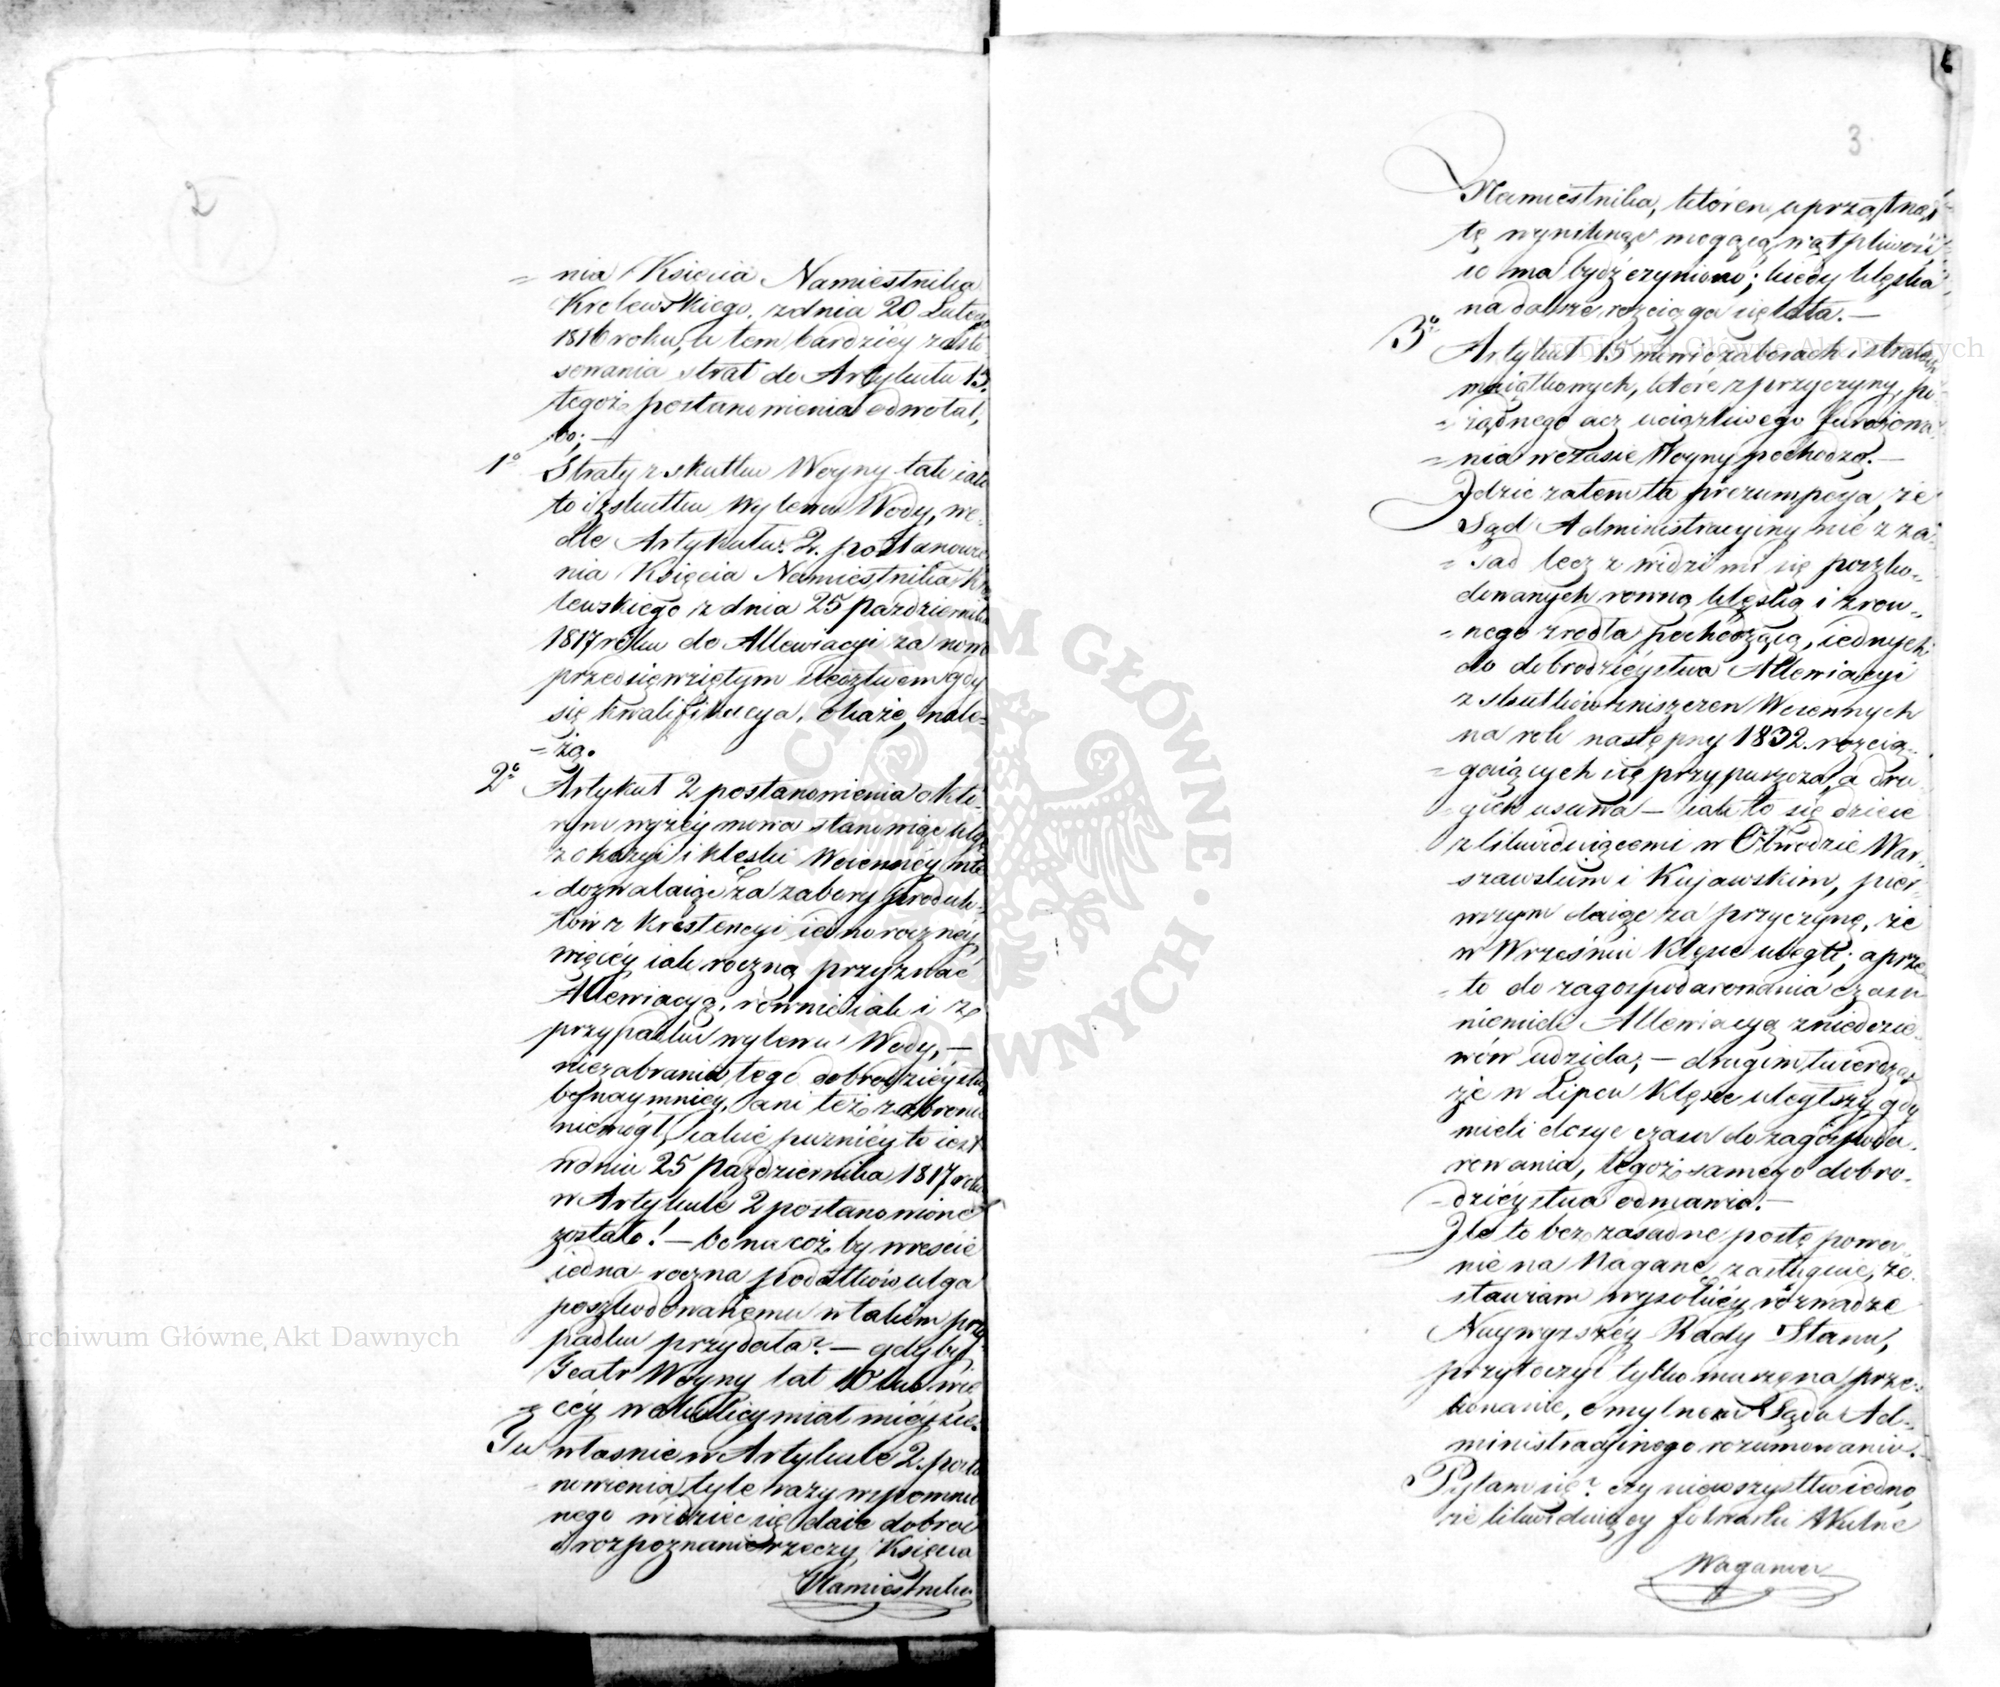 2
= nia Księcia Namiestnika
Krolewskiego, z dnia 20 Lutego
1816 roku, a tem bardziéy zasto
sowania strat do Artykułu 15.
tegoż postanowienia odwołał,
bo; —
1° Straty z skutku Woyny tak iak
to i z skutku Wylewu Wody, we-
dle Artykułu 2. postanowie
nia Księcia Namiestnika Kro
lewskiego z dnia 25 Pazdziernika
1817 roku do Allewiacyi za nowo
przedsięwziętym śledztwem gdy
się kwalifikacya, okaże, nale-
= żą.
2° Artykuł 2 postanowienia o któ-
rym wyżéy mowa stanowiąc ulgę
z okazyi i klęski Woiennéy, nie
dozwalaiąc za zabory produk-
tów z krestencyi iednorocznéy,
więcéy iak roczną przyznać
Allewiacyą, równie iak i w
przypadku wylewu Wody, —
niezabrania tego dobrodzieystwa
bynaymniéy, ani też zabronić
niemógł, iakie pózniéy to iest
w dniu 25 Pazdziernika 1817 roku
w Artykule 2 postanowione
zostało! — bo na cóż by wreście
iedna roczna podatków ulga
poszkodowanemu w takim przy
padku przydała? — gdyby
Teatr Woyny lat 10 lub wię
= céy w okolicy miał mieysce.
Tu własnie w Artykule 2. posta
nowienia tyle razy wspomnio
nego widzieć się daie dobroć
i rozpoznanie rzeczy Księcia
Namiestnika
3
Namiestnika, którem uprzątnął
tę wyniknąć mogącą wątpliwość
co ma bydź czyniono; kiedy klęska
na dalsze rozciąga się lata. —
3° Artykuł 15 mowi o zaborach i stratach
maiątkowych, które z przyczyny, po-
= rządnego acz uciążliwego furażowa
= nia w czasie Woyny pochodzą. —
Gdzie zatem ta prezumpcya, że
Sąd Administracyiny nie z za-
= sad lecz z widzimi się poszko-
dowanych rowną klęską i z row-
= nego zrodła pochodzącą, iednych
do dobrodzieystwa Allewiacyi
z skutków zniszczen Woiennych
na rok następny 1832. rozcią-
= gaiących się przypuszcza, a dru
gich usuwa — iak to się dzieie
z likwiduiącemi w Obwodzie War-
szawskim i Kujawskim, pier-
wszym daiąc za przyczynę, że
w Wrześniu Klęsce ulegli; a prze
to do zagospodarowania czasu
niemieli Allewiacyą z niedosie-
wów udziela; — drugim twierdząc
że w Lipcu Klęsce uległszy gdy
mieli dosyć czasu do zagospoda-
rowania, tegoż samego dobro-
dzieystwa odmawia. —
Ile to bezzasadne postępowa-
nie na Naganę zasługuie, zo-
stawiam wysokiéy rozwadze
Naywyższéy Rady Stanu,
przytoczyć tylko muszę na prze-
konanie, o mylnem Sądu Ad-
ministracyinego rozumowaniu. —
Pytam się? czy niewszystko iedno,
że likwiduiący folwarki Wolne
Waganiec